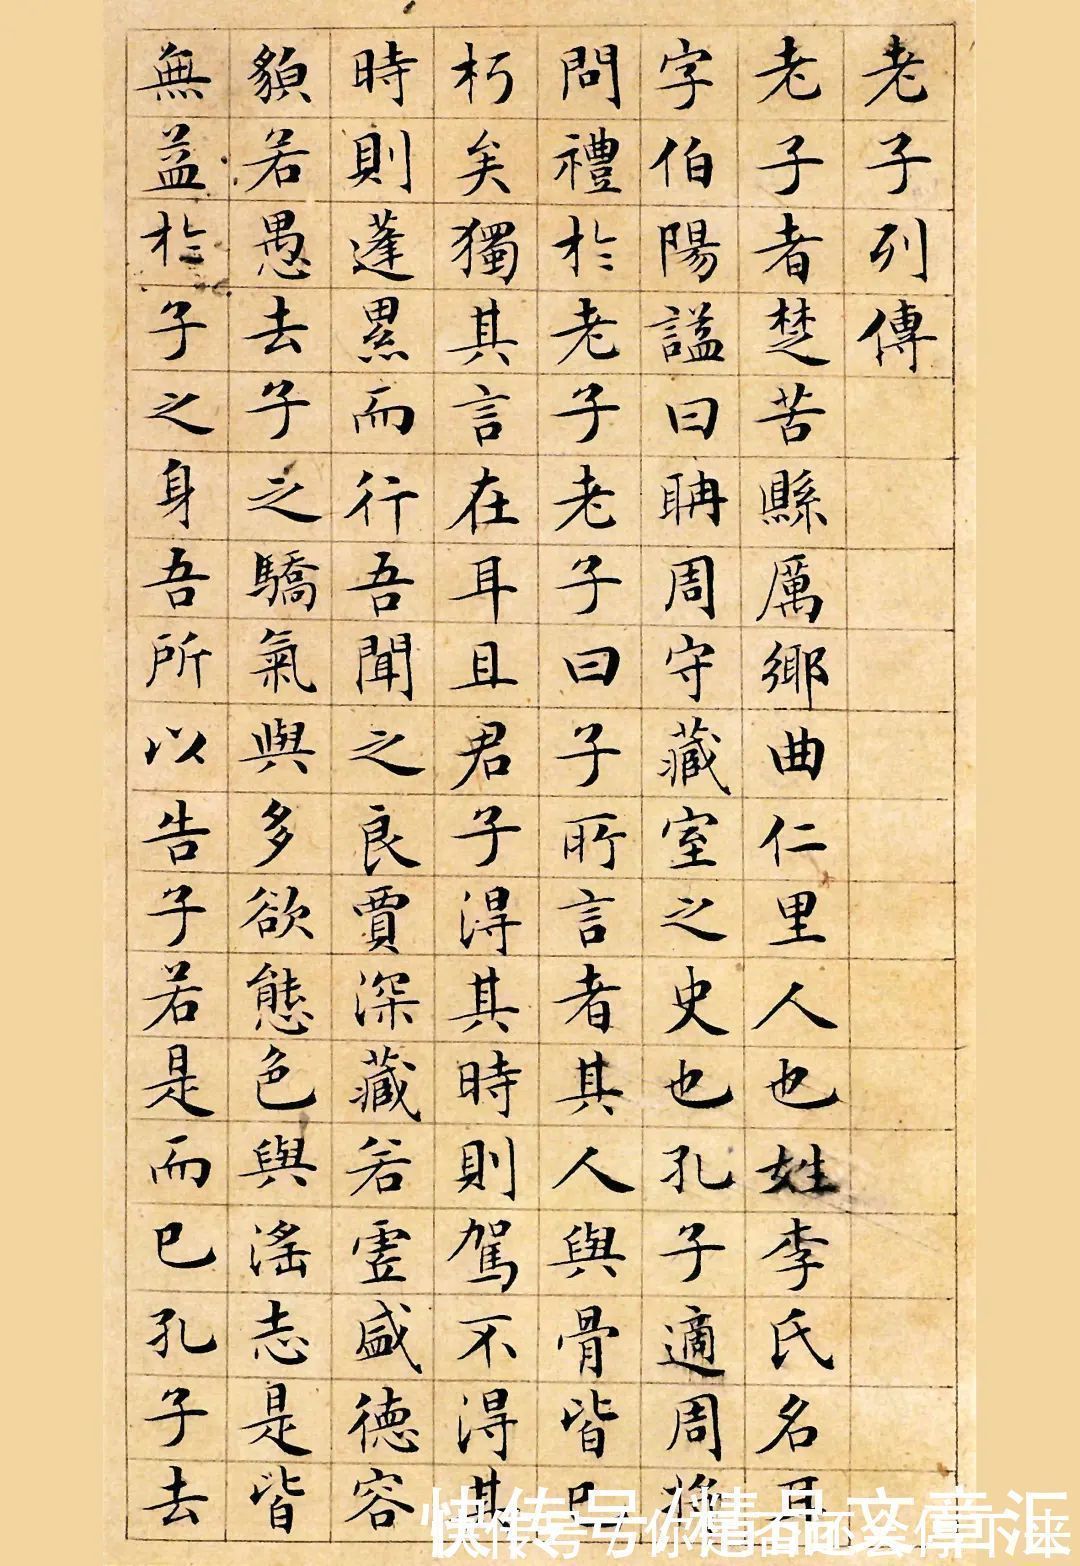 老子列傳
老子者楚苦縣厲鄉曲仁里人也姓李氏名耳
字伯陽謚曰聃周守藏室之史也孔子適周
問禮於老子老子曰子所言者其人與骨皆已
朽矣獨其言在耳且君子得其時則駕不得其
時則蓬累而行吾聞之良賈深藏若虗盛德容
貌若愚去子之驕氣與多欲態色與滛志是皆
無益於子之身吾所以告子若是而已孔子去
快传号/精品文章汇